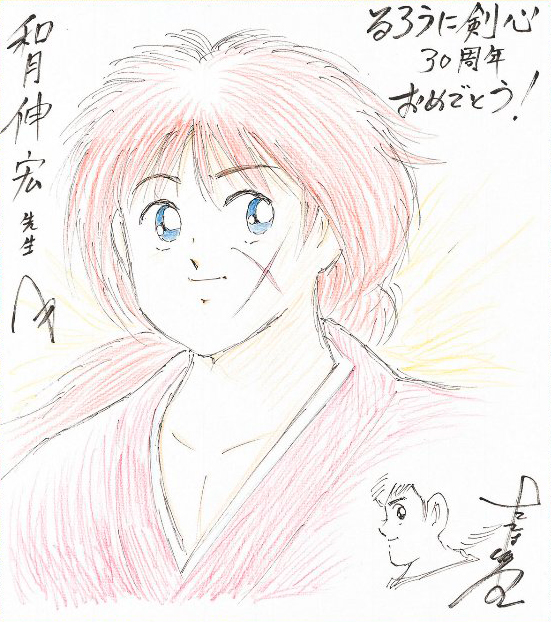 るろうに剣心
30周年
おめでとう!
和月伸宏
先生
へ